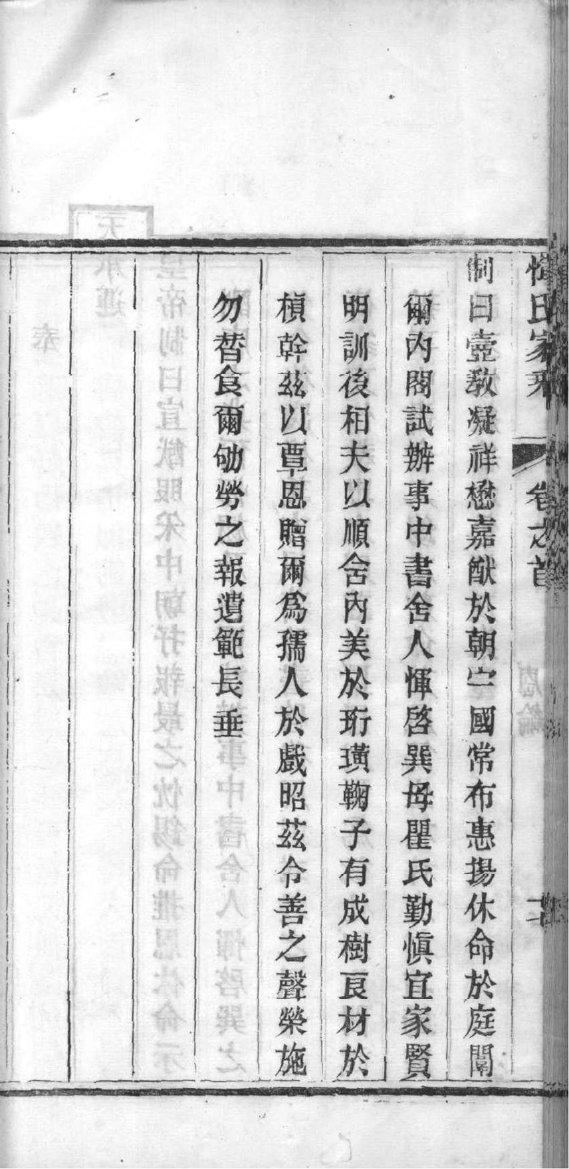 惲氏家乘 卷之首
制曰壼敎凝祥懋嘉猷於朝宁國常布惠揚休命於庭闈
爾內閣試辦事中書舍人惲啓巽母瞿氏勤愼宜家賢
明訓後相夫以順含內美於珩璜鞠子有成樹良材於
楨幹茲以覃恩贈爾爲孺人於戲昭茲令善之聲榮施
勿替食爾劬勞之報遺範長垂